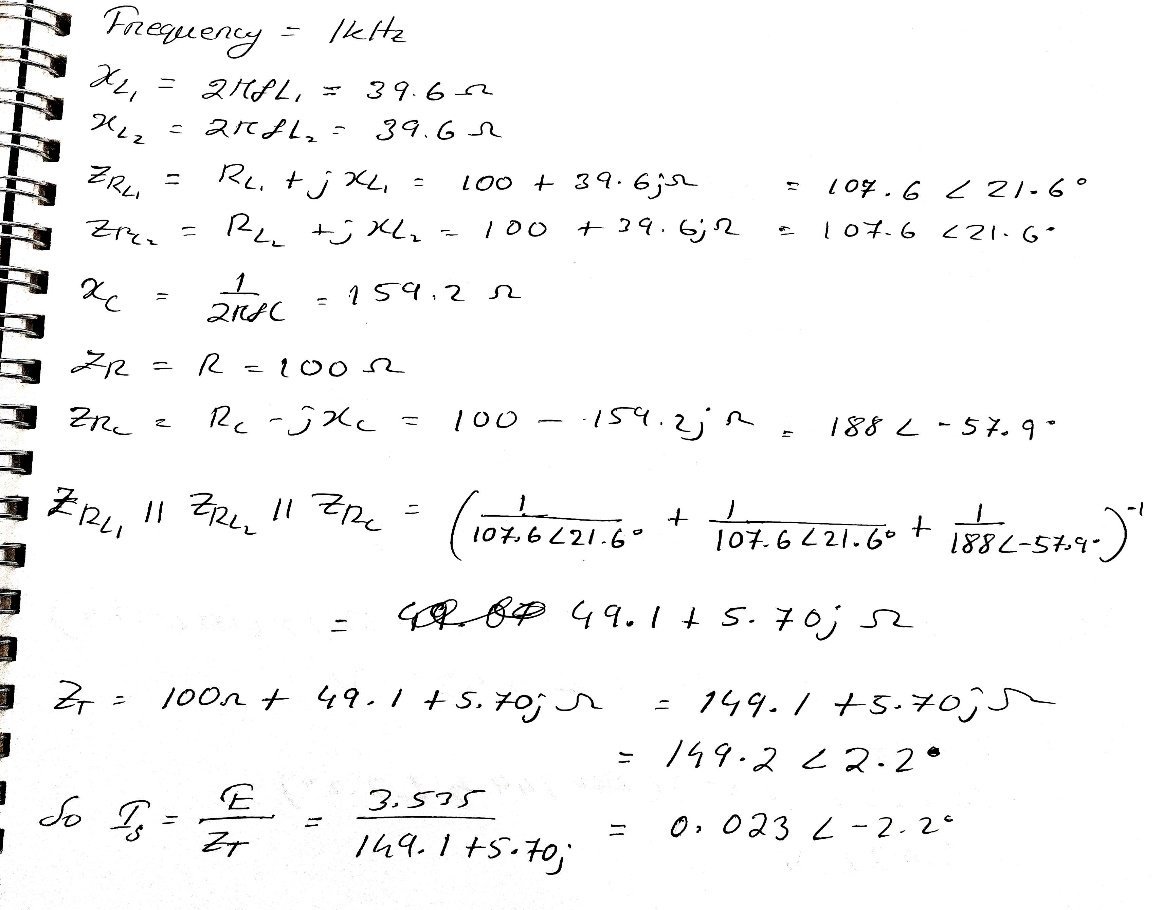 Frequency = 1kHz
XL1 = 2πfL1 = 39.6 Ω
XL2 = 2πfL2 = 39.6 Ω
ZRL1 = RL1 + jXL1 = 100 + 39.6jΩ = 107.6 ∠21.6°
ZRL2 = RL2 + jXL2 = 100 + 39.6jΩ = 107.6 ∠21.6°
Xc = 1/2πfC = 159.2 Ω
ZR = R = 100 Ω
ZRc = Rc - jXc = 100 - 159.2jΩ = 188 ∠-57.9°
ZRL1 || ZRL2 || ZRc = (1/107.6∠21.6° + 1/107.6∠21.6° + 1/188∠-57.9°)^-1
= 49.1 + 5.70j Ω
ZT = 100Ω + 49.1 + 5.70jΩ = 149.1 + 5.70jΩ
= 149.2 ∠2.2°
So Is = E/ZT = 3.535/149.1+5.70j = 0.023 ∠-2.2°